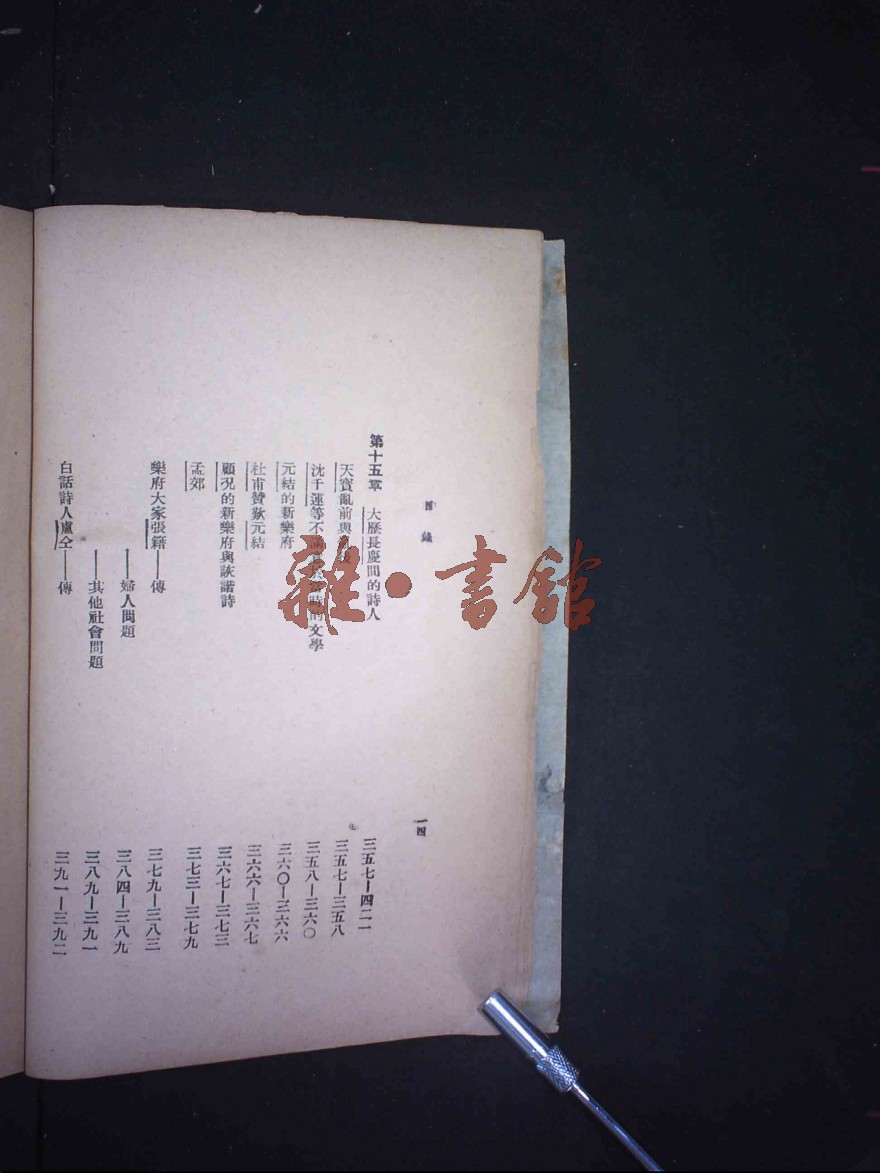 目錄
一四
第十五章 大歷長慶間的詩人 三五七—四二一
天寶亂前與亂後 三五七—三五八
沈千運等不滿意於當時的文學 三五八—三六〇
元結的新樂府 三六〇—三六六
杜甫贊歎元結 三六六—三六七
顧況的新樂府與詼諧詩 三六七—三七三
孟郊 三七三—三七九
樂府大家張籍——傳 三七九—三八三
——婦人問題 三八四—三八九
——其他社會問題 三八九—三九一
白話詩人盧仝——傳 三九一—三九二
雜·書館